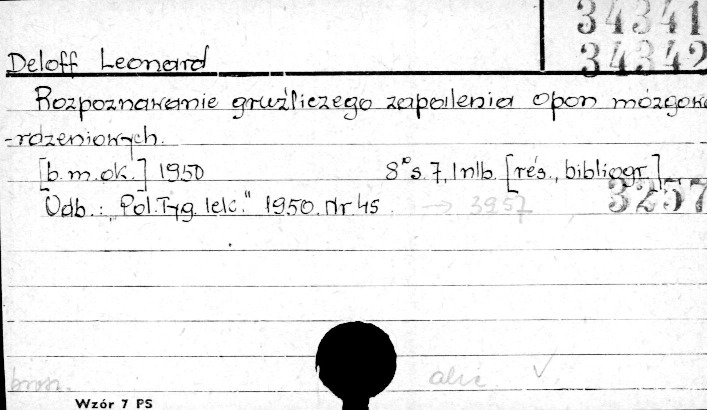 34341
Deloff Leonard 34342
Rozpoznawanie gruźliczego zapalenia opon mózgowo
-rdzeniowych.
[b.m.ok.] 1950 8° s. 7, 1nlb. [rés., bibliogr.]
Odb.: "Pol. Tyg. lek." 1950. Nr. 45 → 3957 3257
brosz. alic ✓
Wzór 7 PS